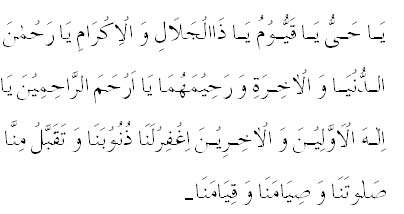 يَـا حَـىُّ يَـا قَيُّـوْمُ يَـا ذَاالْجَلَالِ وَ الْاِكْرَامِ يَا رَحْمٰنَ
الـدُّنْيَـا وَ الْاٰخِـرَةِ وَ رَحِيْمَهُمَا يَا اَرْحَمَ الرَّاحِمِيْنَ يَا
اِلٰـهَ الْاَوَّلِيْـنَ وَ الْاٰخِرِيْـنَ اِغْفِرْلَنَا ذُنُوْبَنَا وَ تَقَبَّلْ مِنَّا
صَلٰوتَنَا وَ صِيَامَنَا وَ قِيَامَنَا ـ